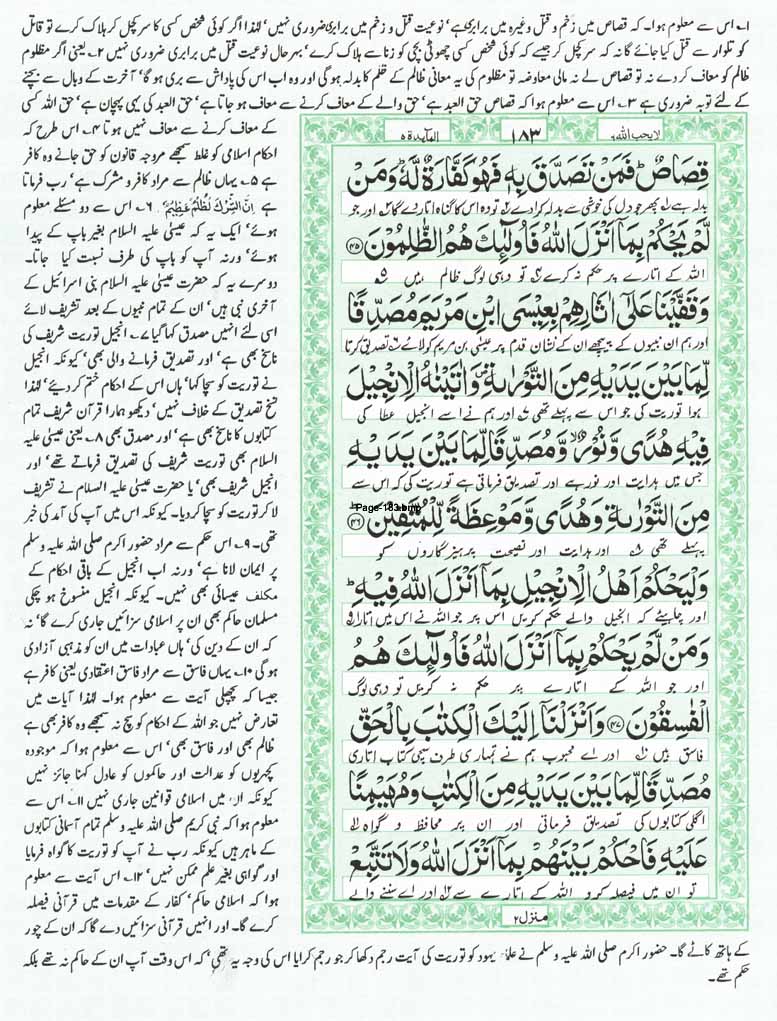 ۱؎ اس سے معلوم ہوا۔ کہ قصاص میں زخم و قتل وغیرہ میں برابری ہے، نوعیت قتل و زخم میں برابری ضروری نہیں، لہٰذا اگر کوئی شخص کسی کا سر کچل کر ہلاک کرے تو قاتل
کو تلوار سے قتل کیا جائے گا نہ کہ سر کچل کر جیسے کہ کوئی شخص کسی چھوٹی بچی کو زنا سے ہلاک کرے، بہرحال نوعیت قتل میں برابری ضروری نہیں ۲؎ یعنی اگر مظلوم
ظالم کو معاف کر دے نہ تو قصاص لے نہ مالی معاوضہ تو مظلوم کی یہ معافی ظالم کے ظلم کا بدلہ ہوگی اور وہ اب اس کی پاداش سے بری ہو گا، آخرت کے وبال سے بچنے
کے لئے توبہ ضروری ہے ۳؎ اس سے معلوم ہوا کہ قصاص حق العبد ہے، حق والے کے معاف کرنے سے معاف ہو جاتا ہے، حق العبد کی یہی پہچان ہے، حق اللہ کسی
کے معاف کرنے سے معاف نہیں ہوتا ۴؎ اس طرح کہ
احکام اسلامی کو غلط سمجھے مروجہ قانون کو حق جانے وہ کافر
ہے ۵؎ یہاں ظالم سے مراد کافر و مشرک ہے، رب فرماتا
ہے اِنَّ الشِّرْكَ لَظُلْمٌ عَظِیْمٌ، ۶؎ اس سے دو مسئلے معلوم
ہوئے، ایک یہ کہ عیسٰی علیہ السلام بغیر باپ کے پیدا
ہوئے، ورنہ آپ کو باپ کی طرف نسبت کیا جاتا۔
دوسرے یہ کہ حضرت عیسٰی علیہ السلام بنی اسرائیل کے
آخری نبی ہیں، ان کے تمام نبیوں کے بعد تشریف لائے
اسی لئے انہیں مصدق کہا گیا ۷؎ انجیل توریت شریف کی
ناسخ بھی ہے، اور تصدیق فرمانے والی بھی، کیونکہ انجیل
نے توریت کو سچا کہا، ہاں اس کے احکام ختم کر دیئے، لہٰذا
نسخ تصدیق کے خلاف نہیں، دیکھو ہمارا قرآن شریف تمام
کتابوں کا ناسخ بھی ہے، اور مصدق بھی ۸؎ یعنی عیسٰی علیہ
السلام بھی توریت شریف کی تصدیق فرماتے تھے، اور
انجیل شریف بھی، یا حضرت عیسٰی علیہ السلام نے تشریف
لا کر توریت کو سچا کر دیا۔ کیونکہ اس میں آپ کی آمد کی خبر
تھی۔ ۹؎ اس حکم سے مراد حضور اکرم صلی اللہ علیہ وسلم
پر ایمان لانا ہے، ورنہ اب انجیل کے باقی احکام کے
مکلف عیسائی بھی نہیں۔ کیونکہ انجیل منسوخ ہو چکی
مسلمان حاکم بھی ان پر اسلامی سزائیں جاری کرے گا، نہ
کہ ان کے دین کی، ہاں عبادات میں ان کو مذہبی آزادی
ہوگی ۱۰؎ یہاں فاسق سے مراد فاسق اعتقادی یعنی کافر ہے
جیسا کہ پچھلی آیت سے معلوم ہوا۔ لہٰذا آیات میں
تعارض نہیں جو اللہ کے احکام کو سچ نہ سمجھے وہ کافر بھی ہے
ظالم بھی اور فاسق بھی، اس سے معلوم ہوا کہ موجودہ
کچہریوں کو عدالت اور حاکموں کو عادل کہنا جائز نہیں
کیونکہ ان میں اسلامی قوانین جاری نہیں ۱۱؎ اس سے
معلوم ہوا کہ نبی کریم صلی اللہ علیہ وسلم تمام آسمانی کتابوں
کے ماہر ہیں کیونکہ رب نے آپ کو توریت کا گواہ فرمایا
اور گواہی بغیر علم ممکن نہیں، ۱۲؎ اس آیت سے معلوم
ہوا کہ اسلامی حاکم، کفار کے مقدمات میں قرآنی فیصلہ
کرے گا۔ اور انہیں قرآنی سزائیں دے گا کہ ان کے چور
لایحب اللہ ۶
۱۸۳
المآئدة ۵
قِصَاصٌ ؕ فَمَنْ تَصَدَّقَ بِهٖ فَهُوَ كَفَّارَةٌ لَّهٗ ؕ وَمَنْ
بدلہ ہے پھر جو دل کی خوشی سے بدلہ کرادے تو وہ اس کا گناہ اتار دے گا اور جو
لَّمْ یَحْكُمْ بِمَاۤ اَنْزَلَ اللّٰهُ فَاُولٰٓىِٕكَ هُمُ الظّٰلِمُوْنَ ﴿۴۵﴾
اللہ کے اتارے پر حکم نہ کرے تو وہی لوگ ظالم ہیں
وَقَفَّیْنَا عَلٰۤی اٰثَارِهِمْ بِعِیْسَی ابْنِ مَرْیَمَ مُصَدِّقًا
اور ہم ان نبیوں کے پیچھے ان کے نشان قدم پر عیسٰی بن مریم کو لائے تصدیق کرتا
لِّمَا بَیْنَ یَدَیْهِ مِنَ التَّوْرٰىةِ ۪ وَاٰتَیْنٰهُ الْاِنْجِیْلَ
ہوا توریت کی جو اس سے پہلے تھی اور ہم نے اسے انجیل عطا کی
فِیْهِ هُدًی وَّنُوْرٌ ۙ وَّمُصَدِّقًا لِّمَا بَیْنَ یَدَیْهِ
جس میں ہدایت اور نور ہے اور تصدیق فرماتی ہے توریت کی کہ اس سے
مِنَ التَّوْرٰىةِ وَهُدًی وَّمَوْعِظَةً لِّلْمُتَّقِیْنَ ﴿۴۶﴾
Page-183.bmp
پہلے تھی اور ہدایت اور نصیحت پرہیزگاروں کو
وَلْیَحْكُمْ اَهْلُ الْاِنْجِیْلِ بِمَاۤ اَنْزَلَ اللّٰهُ فِیْهِ ؕ
اور چاہیئے کہ انجیل والے حکم کریں اس پر جو اللہ نے اس میں اتارا
وَمَنْ لَّمْ یَحْكُمْ بِمَاۤ اَنْزَلَ اللّٰهُ فَاُولٰٓىِٕكَ هُمُ
اور جو اللہ کے اتارے پر حکم نہ کریں تو وہی لوگ
الْفٰسِقُوْنَ ﴿۴۷﴾ وَاَنْزَلْنَاۤ اِلَیْكَ الْكِتٰبَ بِالْحَقِّ
فاسق ہیں اور اے محبوب ہم نے تمہاری طرف سچی کتاب اتاری
مُصَدِّقًا لِّمَا بَیْنَ یَدَیْهِ مِنَ الْكِتٰبِ وَمُهَیْمِنًا
اگلی کتابوں کی تصدیق فرماتی اور ان پر محافظ و گواہ
عَلَیْهِ فَاحْكُمْ بَیْنَهُمْ بِمَاۤ اَنْزَلَ اللّٰهُ وَلَا تَتَّبِعْ
تو ان میں فیصلہ کرو اللہ کے اتارے سے اور اے سننے والے
منزل ۲
کے ہاتھ کاٹے گا۔ حضور اکرم صلی اللہ علیہ وسلم نے علماء یہود کو توریت کی آیت رجم دکھا کر جو رجم کرایا اس کی وجہ یہ تھی، کہ اس وقت آپ ان کے حاکم نہ تھے بلکہ
حکم تھے۔